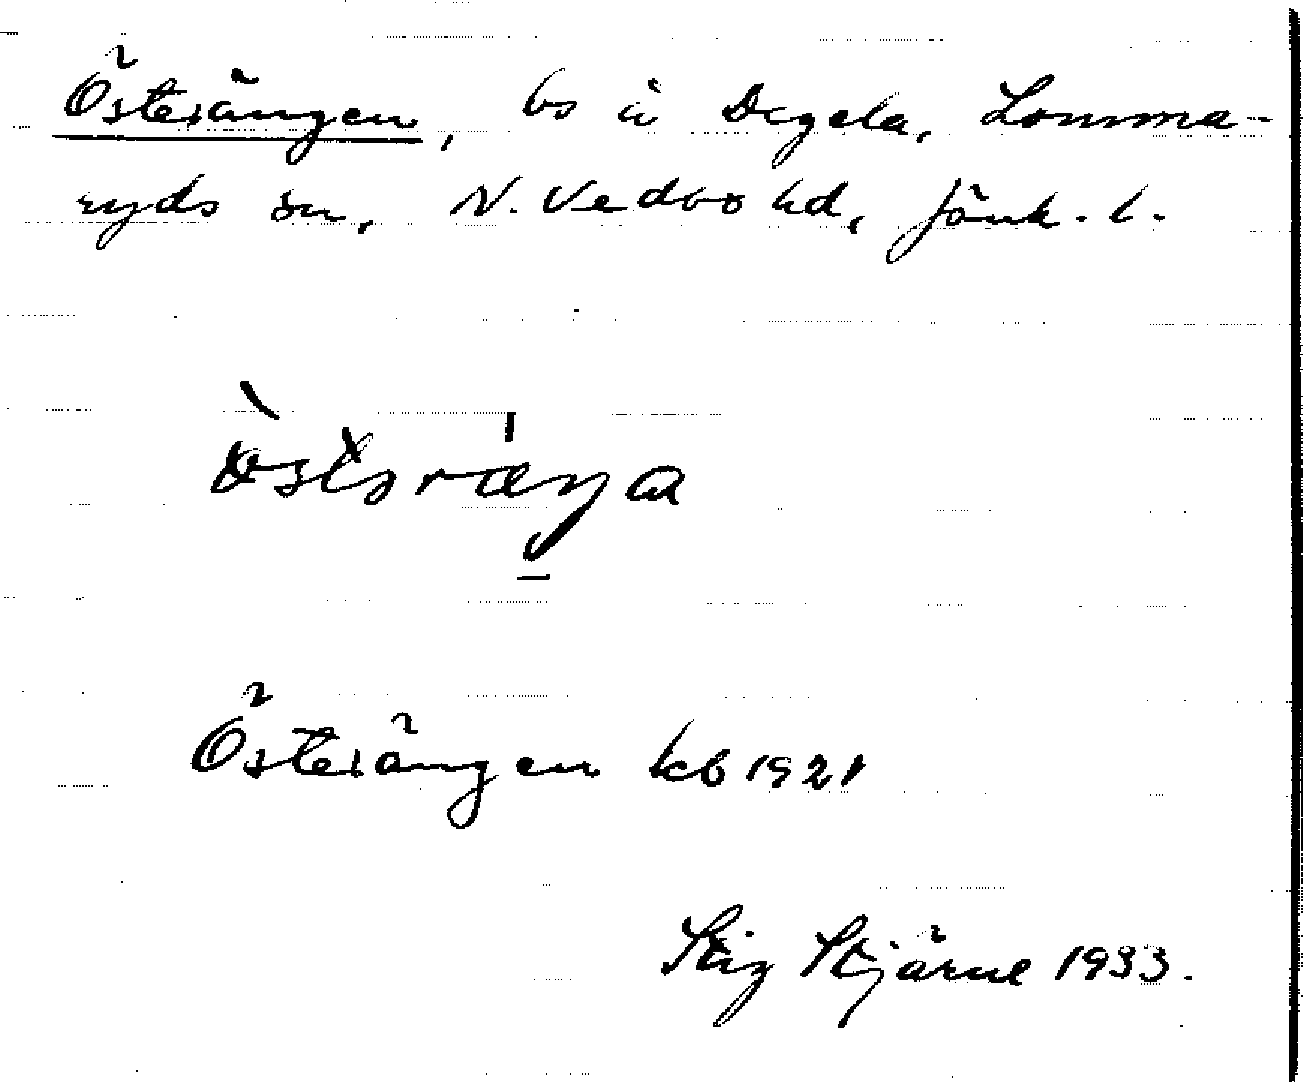 Österängen, bs å Degla, Lomma-
ryds sn, N. Vedbo hd, Jönk. l.
Österängen kb 1921
Stig Stjärne 1933.